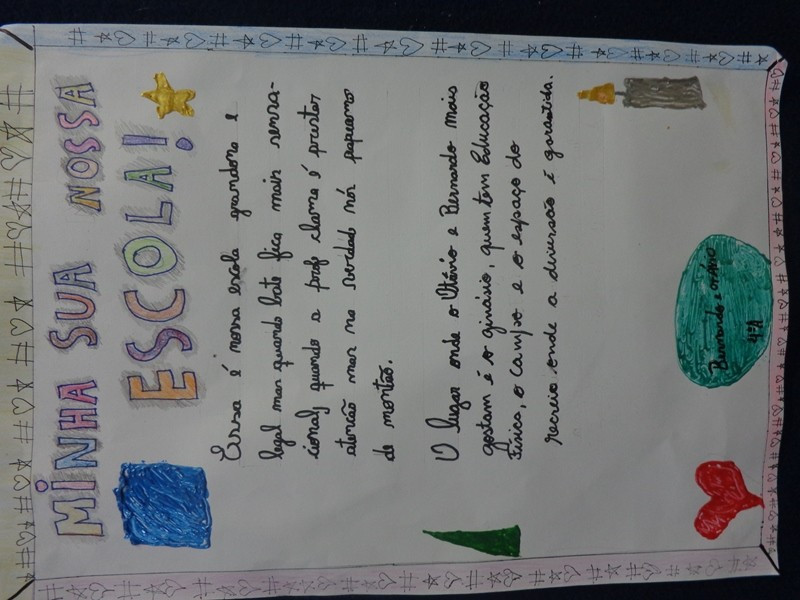 MINHA SUA NOSSA
ESCOLA!
Essa é nossa escola grandona e
legal mas quando bate fica mais sensa-
cional, quando a profe chama é prestar
atenção mas na verdade nós papeamo
de montão.
O lugar onde o Otávio e Bernardo mais
gostam é o ginásio, quem tem Educação
Física, o campo e o espaço do
recreio onde a diversão é garantida.
Bernardo e Otávio